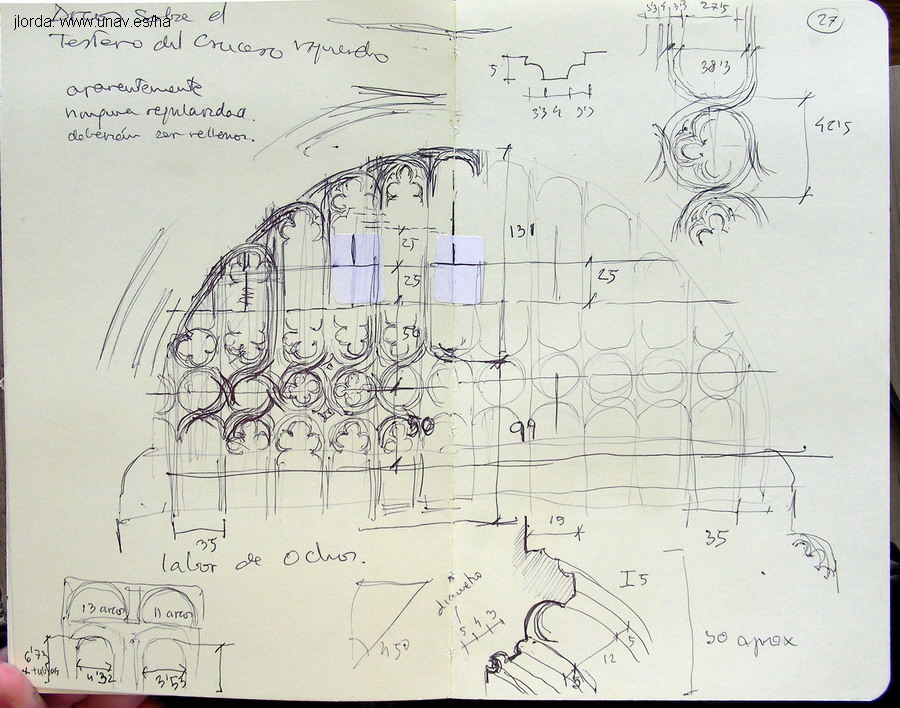 jlorda www.unav.es/ha
sobre el
Testero del Crucero izquierdo
aparentemente
ninguna regularidad.
deberían ser rellenos.
27
5
5'3 4 5'3
27'5
38'3
42'5
25
25
50
50
131
99
25
35
35
labor de ochos.
13 arcos
11 arcos
6'73
4'32
3'53
450
diametro
5 4 3
15
I5
5
12
30 aprox